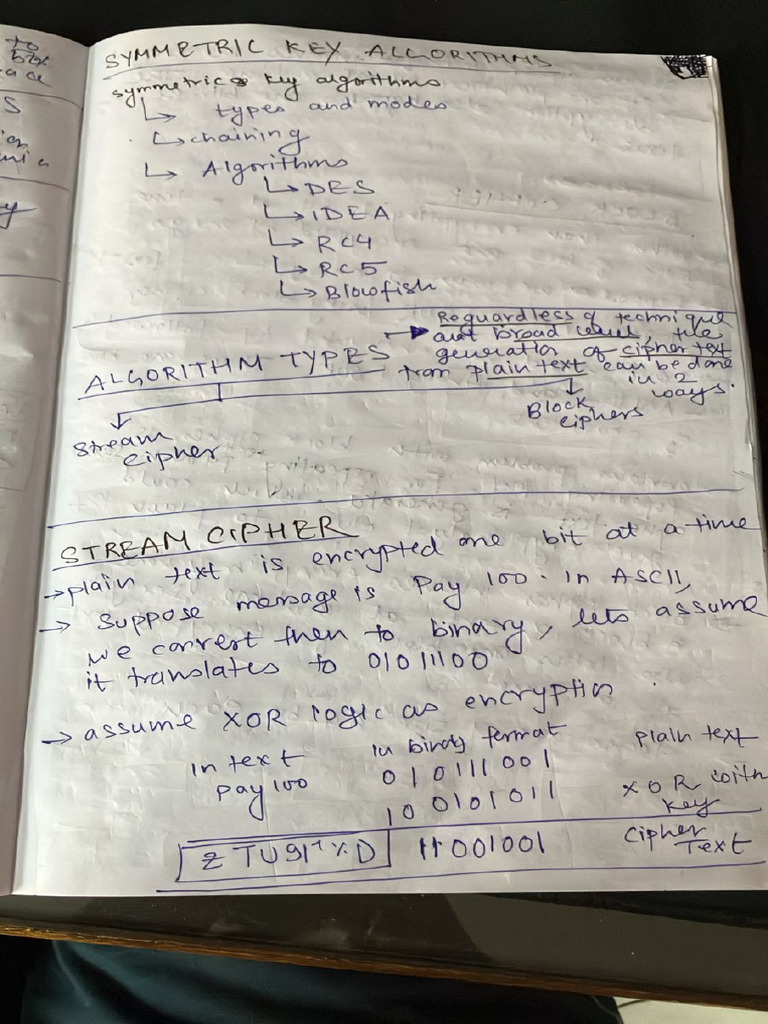 to
S
y
SYMMETRIC KEY ALGORITHMS
symmetric key algorithms
↳ types and modes
↳ chaining
↳ Algorithms
↳ DES
↳ IDEA
↳ RC4
↳ RC5
↳ Blowfish
ALGORITHM TYPES → Reguardless of technique
broad level, the
generation of cipher text
from plain text can be done
in 2 ways.
Stream cipher
Block ciphers
STREAM CIPHER
→ plain text is encrypted one bit at a time
→ Suppose message is Pay 100. In ASCII,
we convert then to binary, lets assume
it translates to 01011100
→ assume XOR logic as encryption.
In text In binary format Plain text
Pay 100 010111001
100101011 XOR with key
Z TU91 % D 11001001 Cipher Text